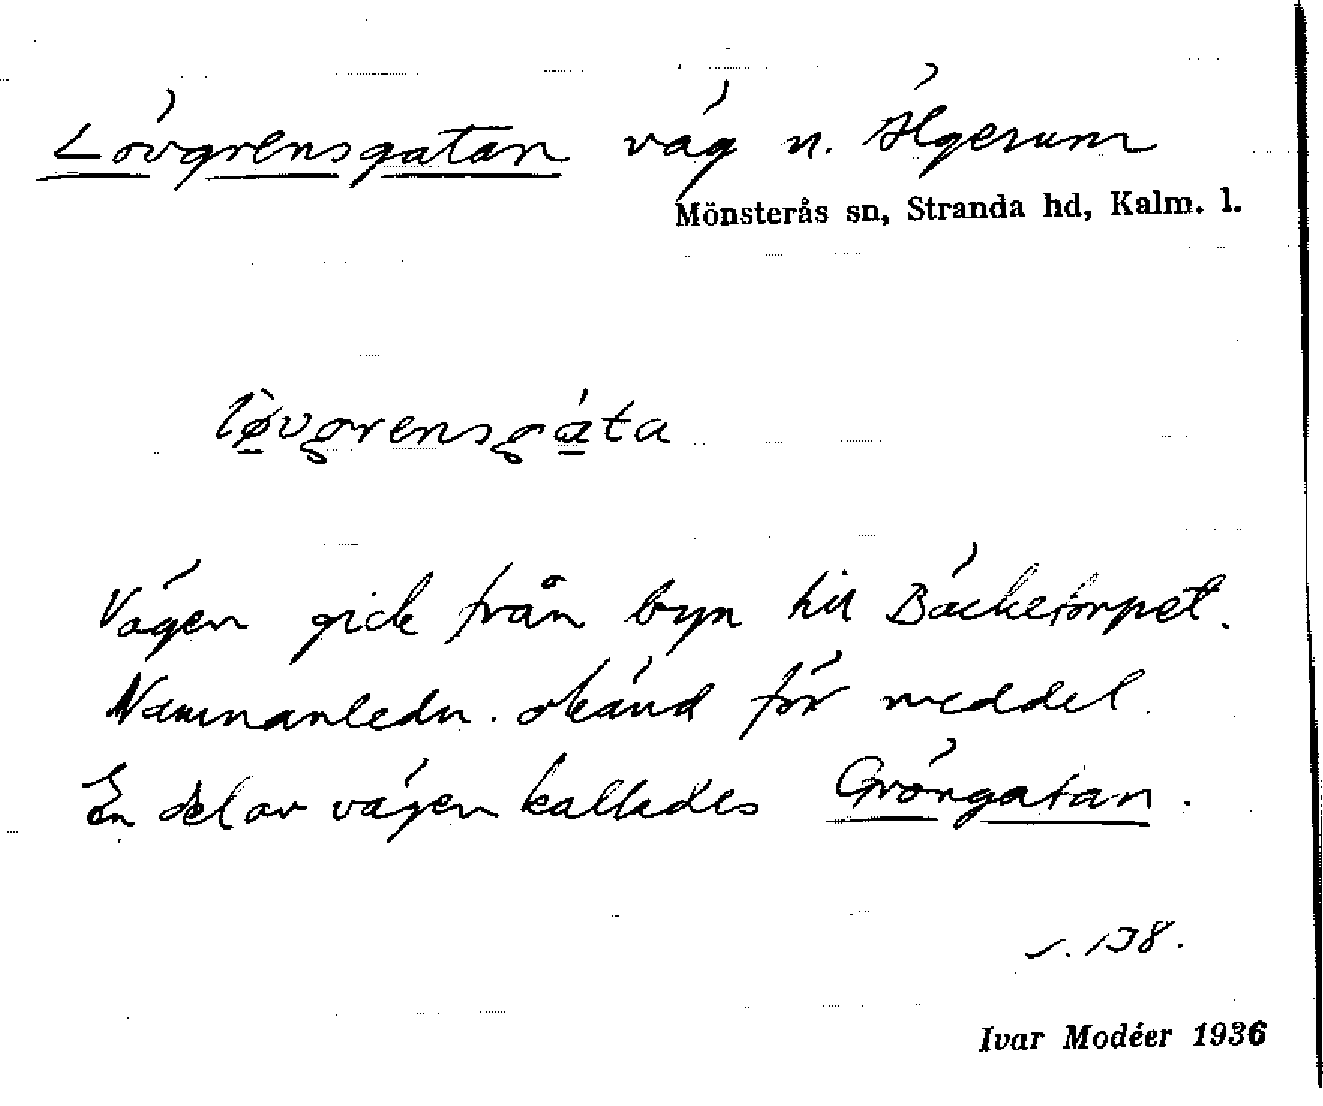 Lövgrensgatan väg n. Älgerum
Mönsterås sn, Stranda hd, Kalm. l.
lø̀vgrensgáta
Vägen gick från byn till Bäcketorpet.
Namnanledn. okänd för meddel.
En del av vägen kallades Gröngatan.
s. 138.
Ivar Modéer 1936